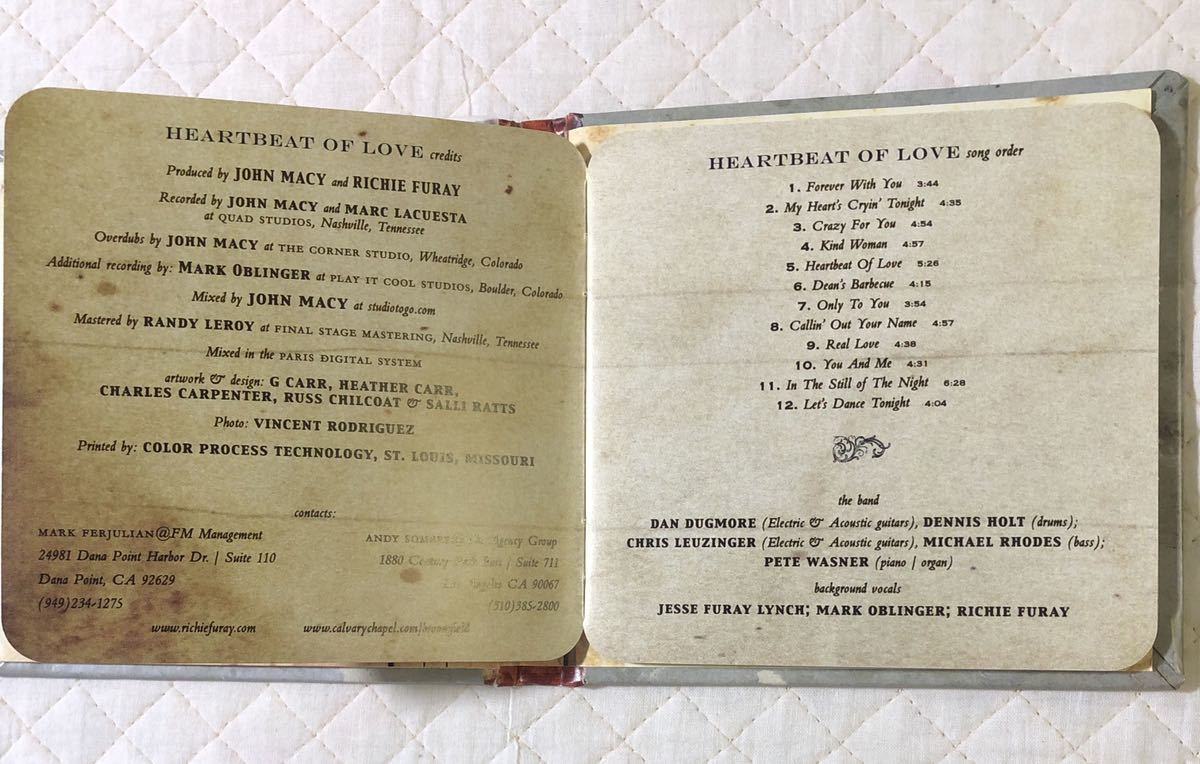 HEARTBEAT OF LOVE credits
Produced by JOHN MACY and RICHIE FURAY
Recorded by JOHN MACY and MARC LACUESTA
at QUAD STUDIOS, Nashville, Tennessee
Overdubs by JOHN MACY at THE CORNER STUDIO, Wheatridge, Colorado
Additional recording by: MARK OBLINGER at PLAY IT COOL STUDIOS, Boulder, Colorado
Mixed by JOHN MACY at studiotogo.com
Mastered by RANDY LEROY at FINAL STAGE MASTERING, Nashville, Tennessee
Mixed in the PARIS DIGITAL SYSTEM
artwork & design: G CARR, HEATHER CARR,
CHARLES CARPENTER, RUSS CHILCOAT & SALLI RATTS
Photo: VINCENT RODRIGUEZ
Printed by: COLOR PROCESS TECHNOLOGY, ST. LOUIS, MISSOURI
contacts:
MARK FERJULIAN@FM Management
24981 Dana Point Harbor Dr. | Suite 110
Dana Point, CA 92629
(949)234-1275
www.richiefuray.com
ANDY Agency Group
1880 Century Park East | Suite 711
Los Angeles CA 90067
(310)385-2800
www.calvarychapel.com/broomfield
HEARTBEAT OF LOVE song order
1. Forever With You 3:44
2. My Heart's Cryin' Tonight 4:35
3. Crazy For You 4:54
4. Kind Woman 4:57
5. Heartbeat Of Love 5:26
6. Dean's Barbecue 4:15
7. Only To You 3:54
8. Callin' Out Your Name 4:57
9. Real Love 4:38
10. You And Me 4:31
11. In The Still of The Night 6:28
12. Let's Dance Tonight 4:04
the band
DAN DUGMORE (Electric & Acoustic guitars), DENNIS HOLT (drums);
CHRIS LEUZINGER (Electric & Acoustic guitars), MICHAEL RHODES (bass);
PETE WASNER (piano | organ)
background vocals
JESSE FURAY LYNCH; MARK OBLINGER; RICHIE FURAY